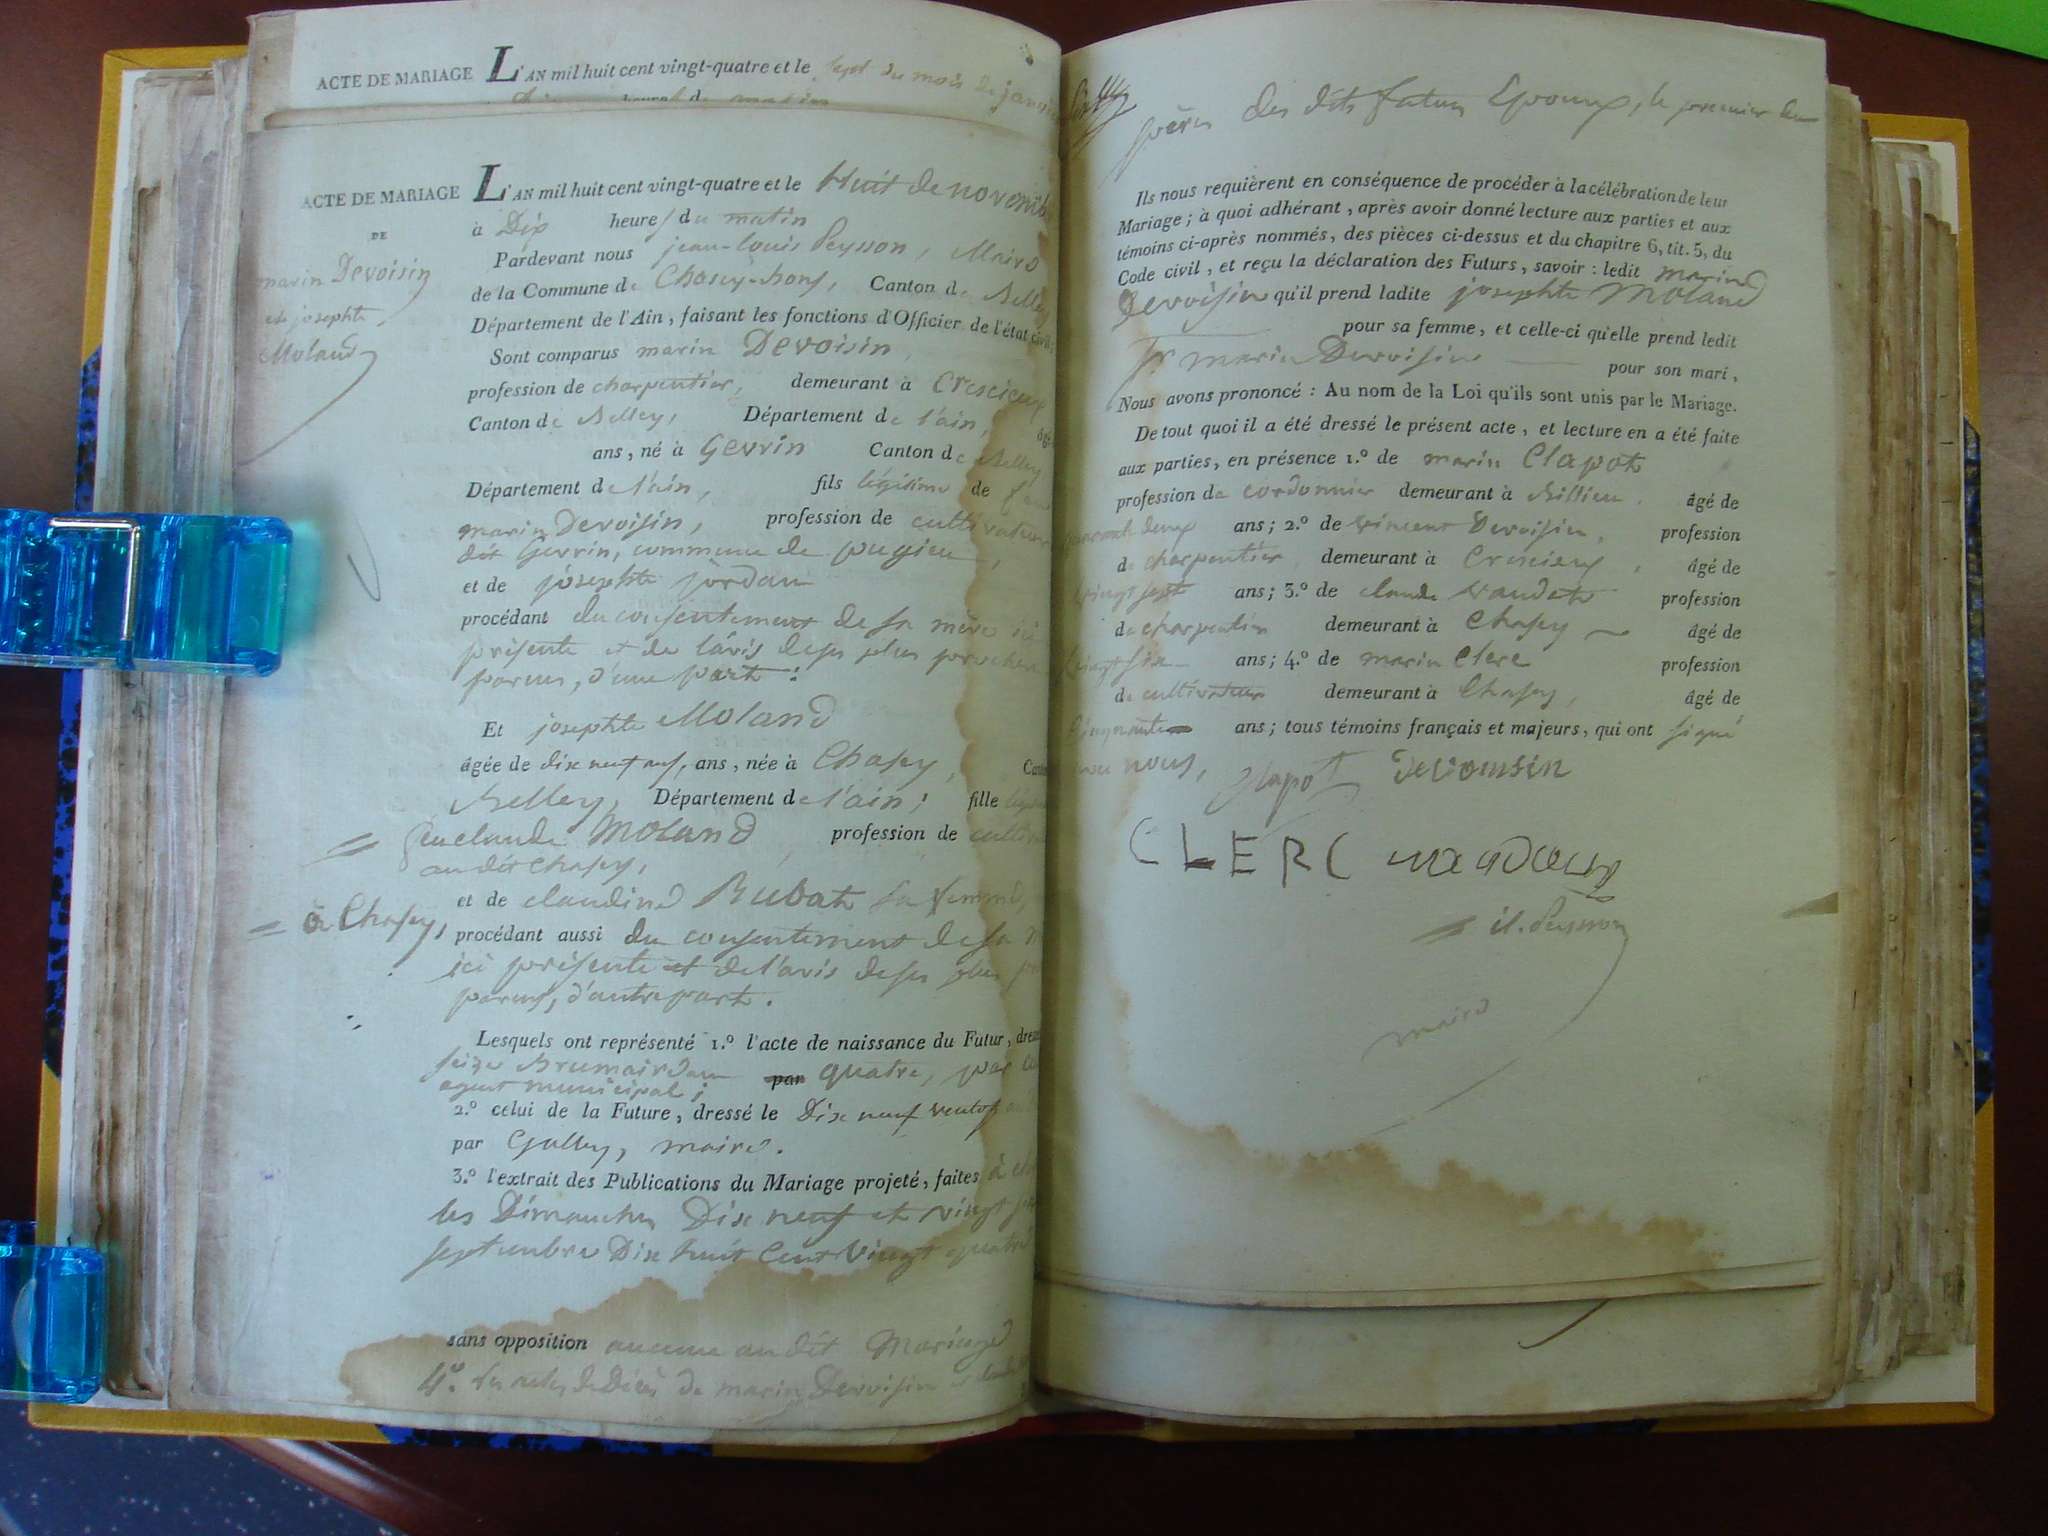 ACTE DE MARIAGE L'AN mil huit cent vingt-quatre et le sept du mois de janvier
heures du matin
ACTE DE MARIAGE
DE
marin Devoisin
et josephte
Moland
L'AN mil huit cent vingt-quatre et le Huit de novembre
à Dix heures du matin
Pardevant nous jean-louis Peysson, Maire
de la Commune de Chasey-bons, Canton de Belley
Département de l'Ain, faisant les fonctions d'Officier de l'état civil;
Sont comparus marin Devoisin,
profession de charpentier, demeurant à Crescieux
Canton de Belley, Département de l'ain, âgé
ans, né à Gevrin Canton de Belley
Département de l'ain, fils légitime de
marin Devoisin, profession de cultivateur
dit Gevrin, commune de pugieu,
et de josephte jordan
procédant du consentement de sa mère ici
présente et de l'avis de ses plus proches
parens, d'une part:
Et josephte Moland
âgée de dix neuf ans, née à Chasey,
Belley, Département de l'ain; fille
= feu claude Moland, profession de
au dit Chasey,
et de claudine Rubat sa femme,
= à Chasey,
procédant aussi du consentement de sa
ici présente et de l'avis de ses plus
parens, d'autre part.
Lesquels ont représenté 1.º l'acte de naissance du Futur,
seize Brumaire an par quatre, par
agent municipal;
2.º celui de la Future, dressé le Dix neuf ventose
par Gulley, maire.
3.º l'extrait des Publications du Mariage projeté, faites à
les Dimanches Dix neuf et vingt
septembre Dix huit Cent vingt quatre
sans opposition aucune au dit Mariage
4º. les actes de Décès de marin Devoisin et
pères des dits futurs Epoux, le premier du
Ils nous requièrent en conséquence de procéder à la célébration de leur
Mariage; à quoi adhérant, après avoir donné lecture aux parties et aux
témoins ci-après nommés, des pièces ci-dessus et du chapitre 6, tit. 5, du
Code civil, et reçu la déclaration des Futurs, savoir: ledit marin
Devoisin qu'il prend ladite josephte Moland
pour sa femme, et celle-ci qu'elle prend ledit
Sr. marin Devoisin pour son mari,
Nous avons prononcé: Au nom de la Loi qu'ils sont unis par le Mariage.
De tout quoi il a été dressé le présent acte, et lecture en a été faite
aux parties, en présence 1.º de marin Clapot
profession de cordonnier demeurant à Billieu, âgé de
quarante deux ans; 2.º de vincent Devoisin, profession
de charpentier demeurant à Crescieux, âgé de
vingt sept ans; 3.º de claude vaudet profession
de charpentier demeurant à Chasey âgé de
vingt six ans; 4.º de marin Clerc profession
de cultivateur demeurant à Chasey, âgé de
Cinquante ans; tous témoins français et majeurs, qui ont signé
avec nous, Clapot Devoisin
CLERC
= j.l. Peysson
maire